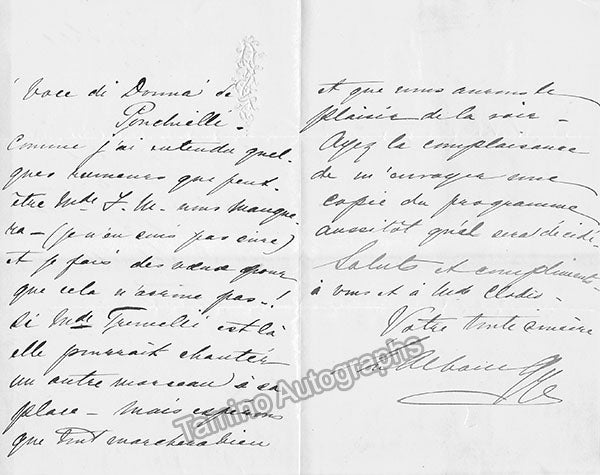 'Voce di Donna' de
Ponchielli -
Comme j'ai entendu quel-
ques rumeurs que peut-
être Mde T. M. nous manque-
ra - (je n'en suis pas sûre)
et je fais des vœux pour
que cela n'arrive pas - !
Si Mde Tremelli est là
elle pourrait chanter
un autre morceau à sa
place - mais espérons
que tout marchera bien
et que nous aurons le
plaisir de la voir -
Ayez la complaisance
de m'envoyer une
copie du programme
aussitôt qu'il sera décidé.
Saluts et compliments
à vous et à Mde
Votre toute sincère
Albani
Tamino Autographs